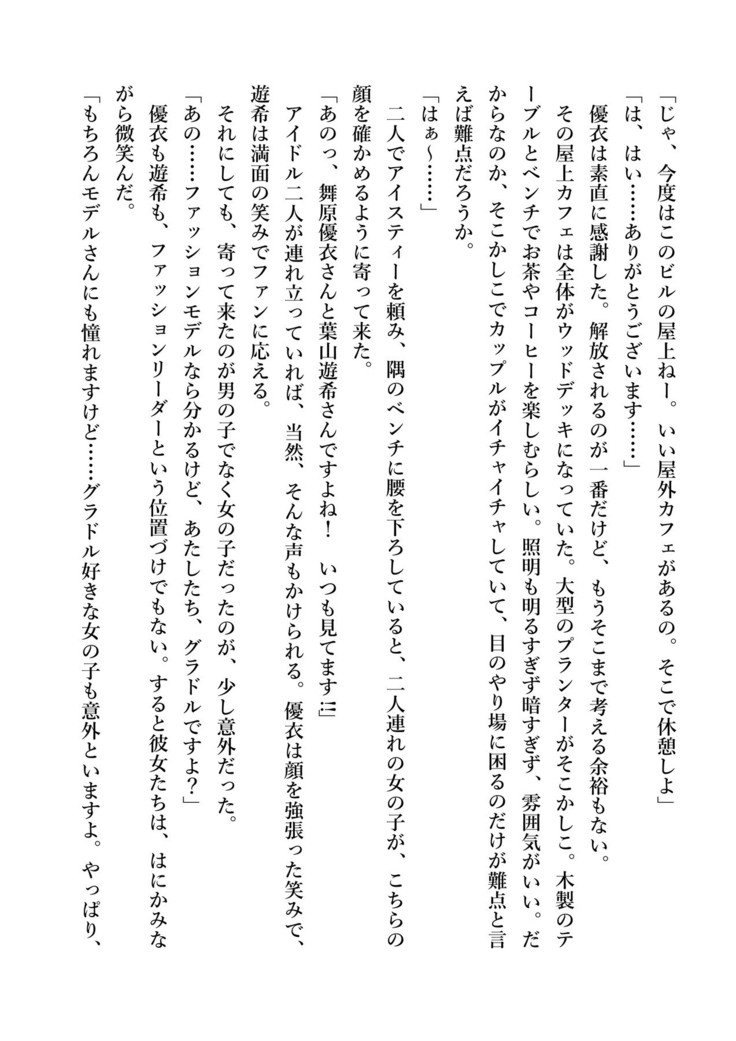 「じゃ、今度はこのビルの屋上ねー。いい屋外カフェがあるの。そこで休憩しよ」
「は、はい……ありがとうございます……」
　優衣は素直に感謝した。解放されるのが一番だけど、もうそこまで考える余裕もない。
　その屋上カフェは全体がウッドデッキになっていた。大型のプランターがそこかしこ。木製のテ
ーブルとベンチでお茶やコーヒーを楽しむらしい。照明も明るすぎず暗すぎず、雰囲気がいい。だ
からなのか、そこかしこでカップルがイチャイチャしていて、目のやり場に困るのだけが難点と言
えば難点だろうか。
「はぁ～……」
　二人でアイスティーを頼み、隅のベンチに腰を下ろしていると、二人連れの女の子が、こちらの
顔を確かめるように寄って来た。
「あのっ、舞原優衣さんと葉山遊希さんですよね！　いつも見てます!!」
　アイドル二人が連れ立っていれば、当然、そんな声もかけられる。優衣は顔を強張った笑みで、
遊希は満面の笑みでファンに応える。
　それにしても、寄って来たのが男の子でなく女の子だったのが、少し意外だった。
「あの……ファッションモデルなら分かるけど、あたしたち、グラドルですよ？」
　優衣も遊希も、ファッションリーダーという位置づけでもない。すると彼女たちは、はにかみな
がら微笑んだ。
「もちろんモデルさんにも憧れますけど……グラドル好きな女の子も意外といますよ。やっぱり、